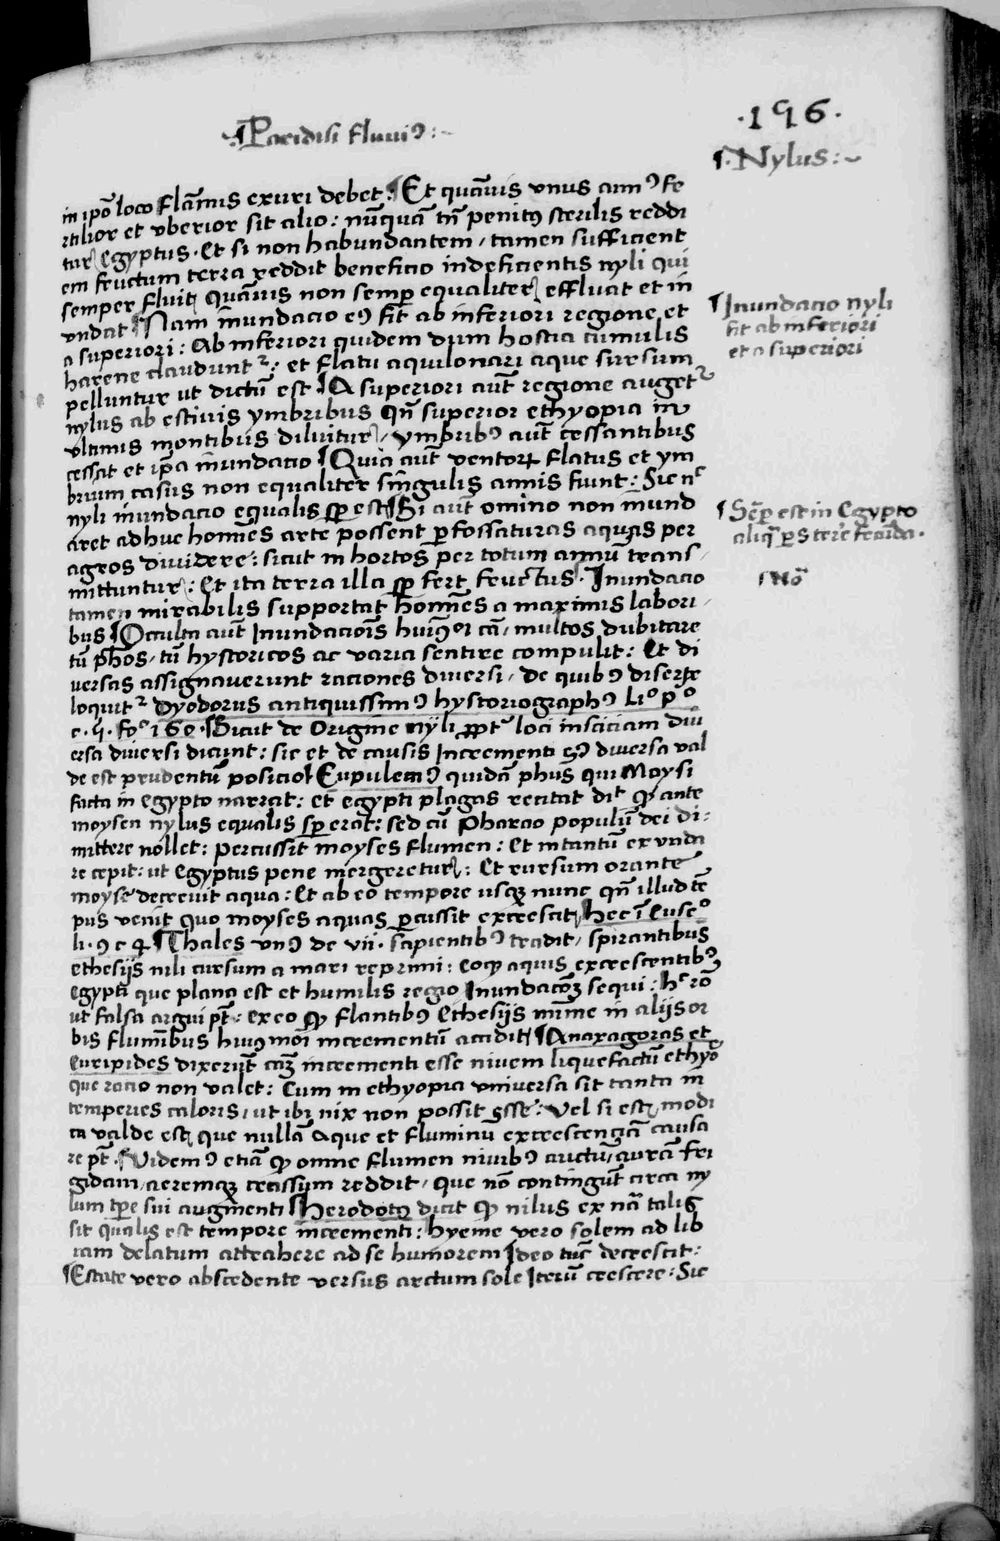 ¶Paridisi fluviꝰ:~
·196·
¶·Nylus:~
in ipō loco flam̄is exuri debet ¶Et quāuis vnus annꝰ fe
rtilior et vberior sit alio: nūquā tn̄ penitꝰ sterilis reddi
tur egyptus · Et si non habundantem / tamen sufficient
em fructum terra reddit beneficio indeficientis nyli qui
semper fluit quāuis non semꝑ equaliter effluat et in
vndat ¶Nam īnundacio eiꝰ fit ab inferiori regione et
a superiori: Ab inferiori quidem dum hostia cumulis
harene claudunt᷑: et flatu aquilonari aque sursum
pelluntur ut dictū est ¶A superiori aūt regione auget᷑
nylus ab estiuis ymbribus qn̄ superior ethyopia in
vltimis montibus diluitur / ymbribꝰ aūt cessantibus
cessat et ip̄a īnundacio ¶Quia aūt ventoꝝ flatus et ym
brium casus non equaliter singulis annis fiunt: Sic nc̄
nyli inundacio equalis sꝑ est ¶Si aūt omīno non inund
aret adhuc homīes arte possent ꝑ fossaturas aquas per
agros diuidere: sicut in hortos per totum annū trans /
mittuntur: Et ita terra illa sꝑ fert fructus · Inundacio
tamen mirabilis supportat homīes a maximis labori /
bus ¶Occulta aūt Inundaciōis huiꝰmōi cā / multos dubitare
tū ph̄os / tū hystoricos ac varia sentire compulit: Et di
uersas assignauerunt raciones diuersi / de quibꝰ diserte
loquit᷑ dyodorus antiquissimꝰ hystoriographꝰ li° p°
c· 4· fo° 160 · Sicut de Origine nyli ꝓpt᷑ loci insciciam diu
ersa diuersi dicunt: sic et de causis Incrementi eiꝰ diuersa val
de est prudentū posicio ¶Eupulemꝰ quidā phūs qui Moysi
facta in egypto narrat: et egypti plagas recitat dit ꝙ ante
moysen nylus equalis sꝑ erat: sed cū Pharao populū dei di:
mittere nollet: percussit moyses flumen: Et intantū exunda
re cepit: ut Egyptus pene mergeretur: Et rursum orante
moyse decreuit aqua: Et ab eo tempore usqꝫ nunc qn̄ illud tē
pus venit quo moyses aquas ꝑcussit excrescit / hec ī Euse°
li· 9 c 4 ¶Thales vnꝰ de vii· sapientibꝰ tradit / spirantibus
ethesijs nili cursum a mari reprimi: eoqꝫ aquis excrescentibꝰ
Egypti que plana est et humilis regio Inundacōꝫ sequi: hc̄ rō
ut falsa argui pt̄: ex eo ꝙ flantibꝰ Ethesijs mīme in alijs or
bis fluminibus huiꝰmōi incrementū accidit ¶Anaxagoras et
Euripides dixerūt cāꝫ incrementi esse niuem liquefactū ethyo
que racio non valet: Cum in ethyopia vniuersa sit tanta in
temperies caloris / ut ibi nix non possit esse: Vel si est modi
ca valde est que nullā aque et fluminū excrescenciā causa
re pt̄ · Videmꝰ etiā ꝙ omne flumen niuibꝰ auctū / aurā fri
gidam / aeremqꝫ crassum reddit / que nō contingūt circa ny
lum tꝑe sui augmenti ¶herodotꝰ dicit ꝙ nilus ex nā talis
sit qualis est tempore incrementi: hyeme vero solem ad lib
iam delatum attrahere ad se humorem Ideo tūc decrescit:
¶Estate vero abscedente versus arctum sole Iterū crescere: Sic
¶Inundacio nyli
fit ab inferiori
et a superiori
¶Sēꝑ est in Egypto
¶Nō